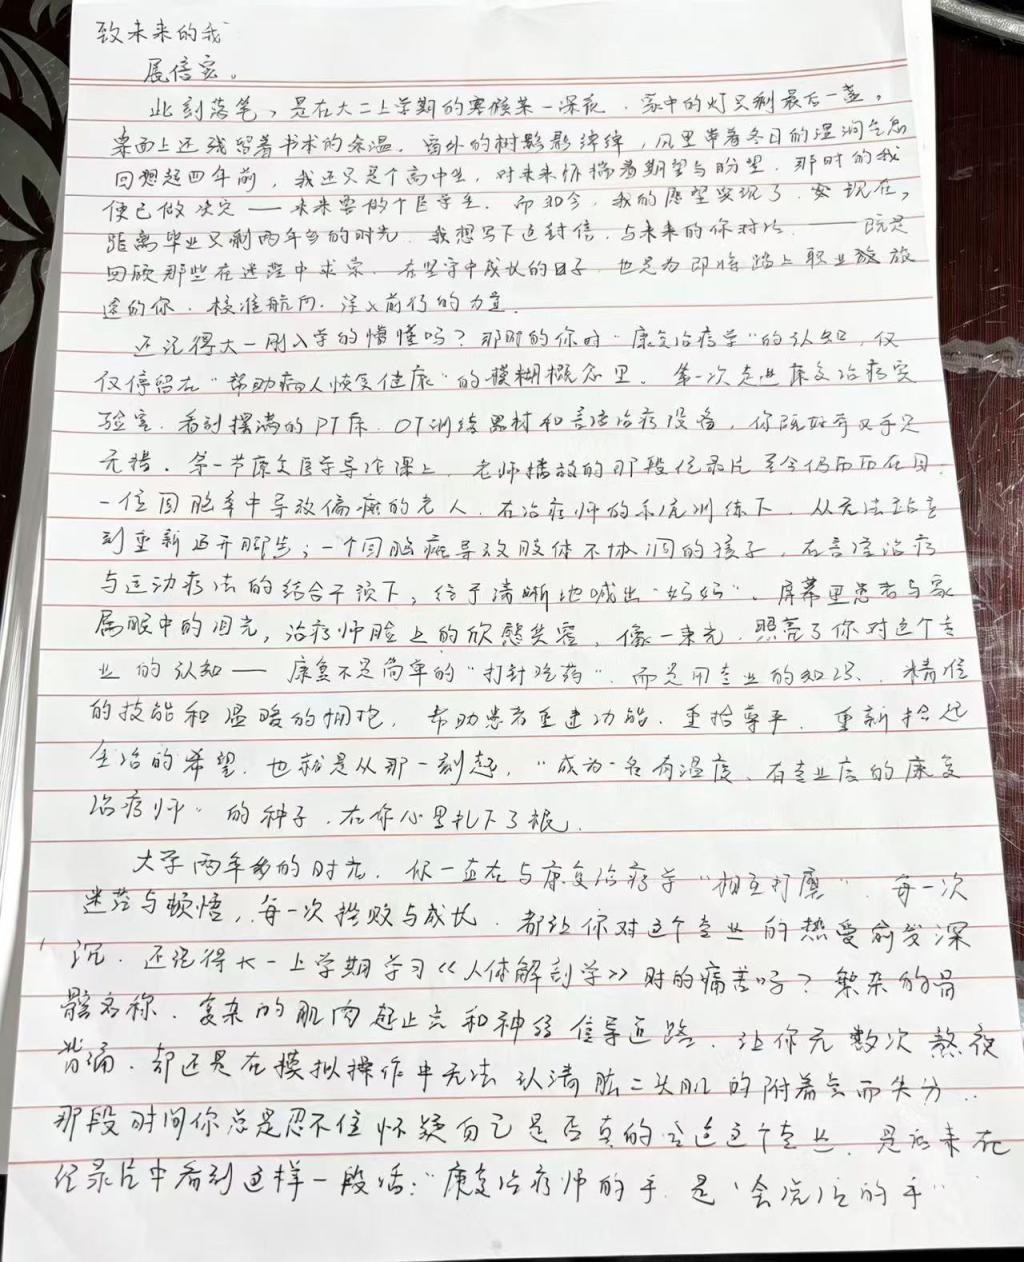 致未来的我
展信宏。
此刻落笔，是在大二上学期的寒候某一深夜．家中的灯只剩最后一盏，
桌面上还残留着书本的余温．窗外的树影影绰绰，风里带着冬日的湿润气息
回想起四年前，我还只是个高中生，对未来怀揣着期望与盼望．那时的我
便已做决定——未来要做个医学生．而如今，我的愿望实现了．现在，
距离毕业只剩两年多的时光．我想写下这封信．与未来的你对话——既是
回顾那些在迷茫中求索．在坚守中成长的日子．也是为即将踏上职业旅
途的你．校准航向．注入前行的力量．
还记得大一刚入学的懵懂吗？那时的你对“康复治疗学”的认知，仅
仅停留在“帮助病人恢复健康”的模糊概念里．第一次走进康复治疗实
验室．看到摆满的PT床．OT训练器材和言语治疗设备，你既好奇又手足
无措．第一节康复医学导论课上，老师播放的那段纪录片至今仍历历在目：
一位因脑卒中导致偏瘫的老人．在治疗师的系统训练下．从无法站立
到重新迈开脚步；一个因脑瘫导致肢体不协调的孩子，在言语治疗
与运动疗法的结合干预下，终于清晰地喊出“妈妈”．屏幕里患者与家
属眼中的泪光，治疗师脸上的欣慰笑容，像一束光．照亮了你对这个专
业的认知——康复不是简单的“打针吃药”．而是用专业的知识．精准
的技能和温暖的拥抱，帮助患者重建功能．重拾尊严．重新拾起
生活的希望．也就是从那一刻起，“成为一名有温度、有专业度的康复
治疗师”的种子．在你心里扎下了根．
大学两年多的时光，你一直在与康复治疗学“相互打磨”．每一次
迷茫与顿悟，每一次挫败与成长．都让你对这个专业的热爱愈发深
沉．还记得大一上学期学习《人体解剖学》时的痛苦吗？繁杂的骨
骼名称．复杂的肌肉起止点和神经传导通路．让你无数次熬夜
背诵．却还是在模拟操作中无法认清肱二头肌的附着点而失分．
那段时间你总是忍不住怀疑自己是否真的合适这个专业．是后来在
纪录片中看到这样一段话：“康复治疗师的手．是‘会说话的手”